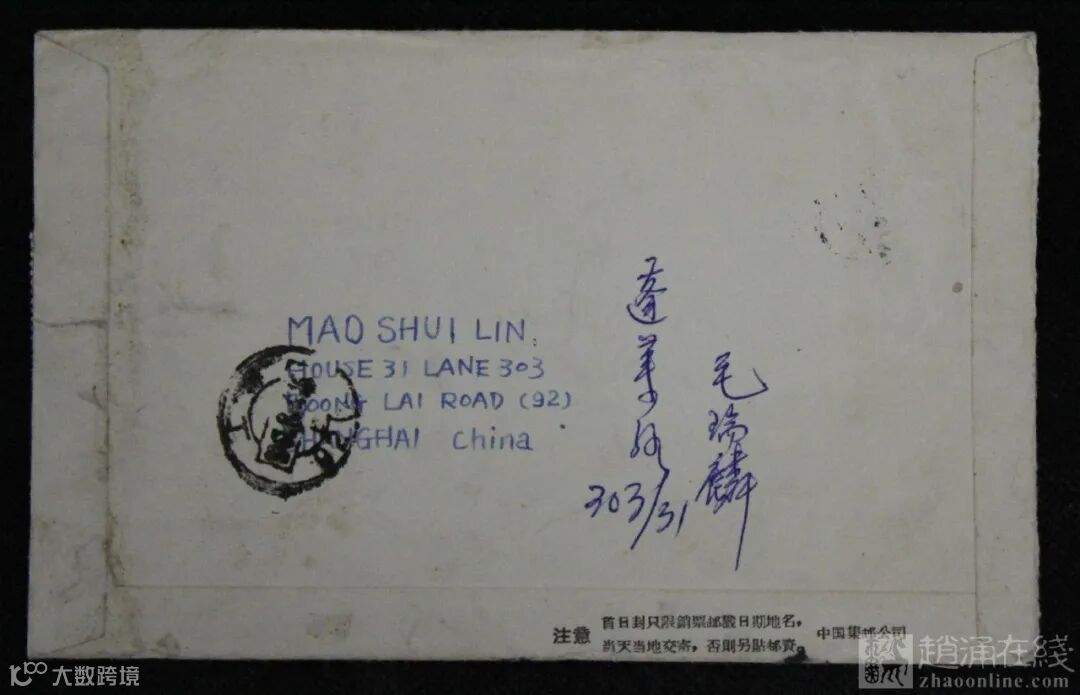 MAO SHUI LIN.
HOUSE 31 LANE 303
LAI ROAD (92)
SHANGHAI China
蓬莱路
303/31
毛瑞麟
注意
首日封只限銷票邮戳日期地名，
当天当地交寄，否则另貼邮資。
中国集邮公司
大数跨境
趙涌在綫
zhaoonline.com